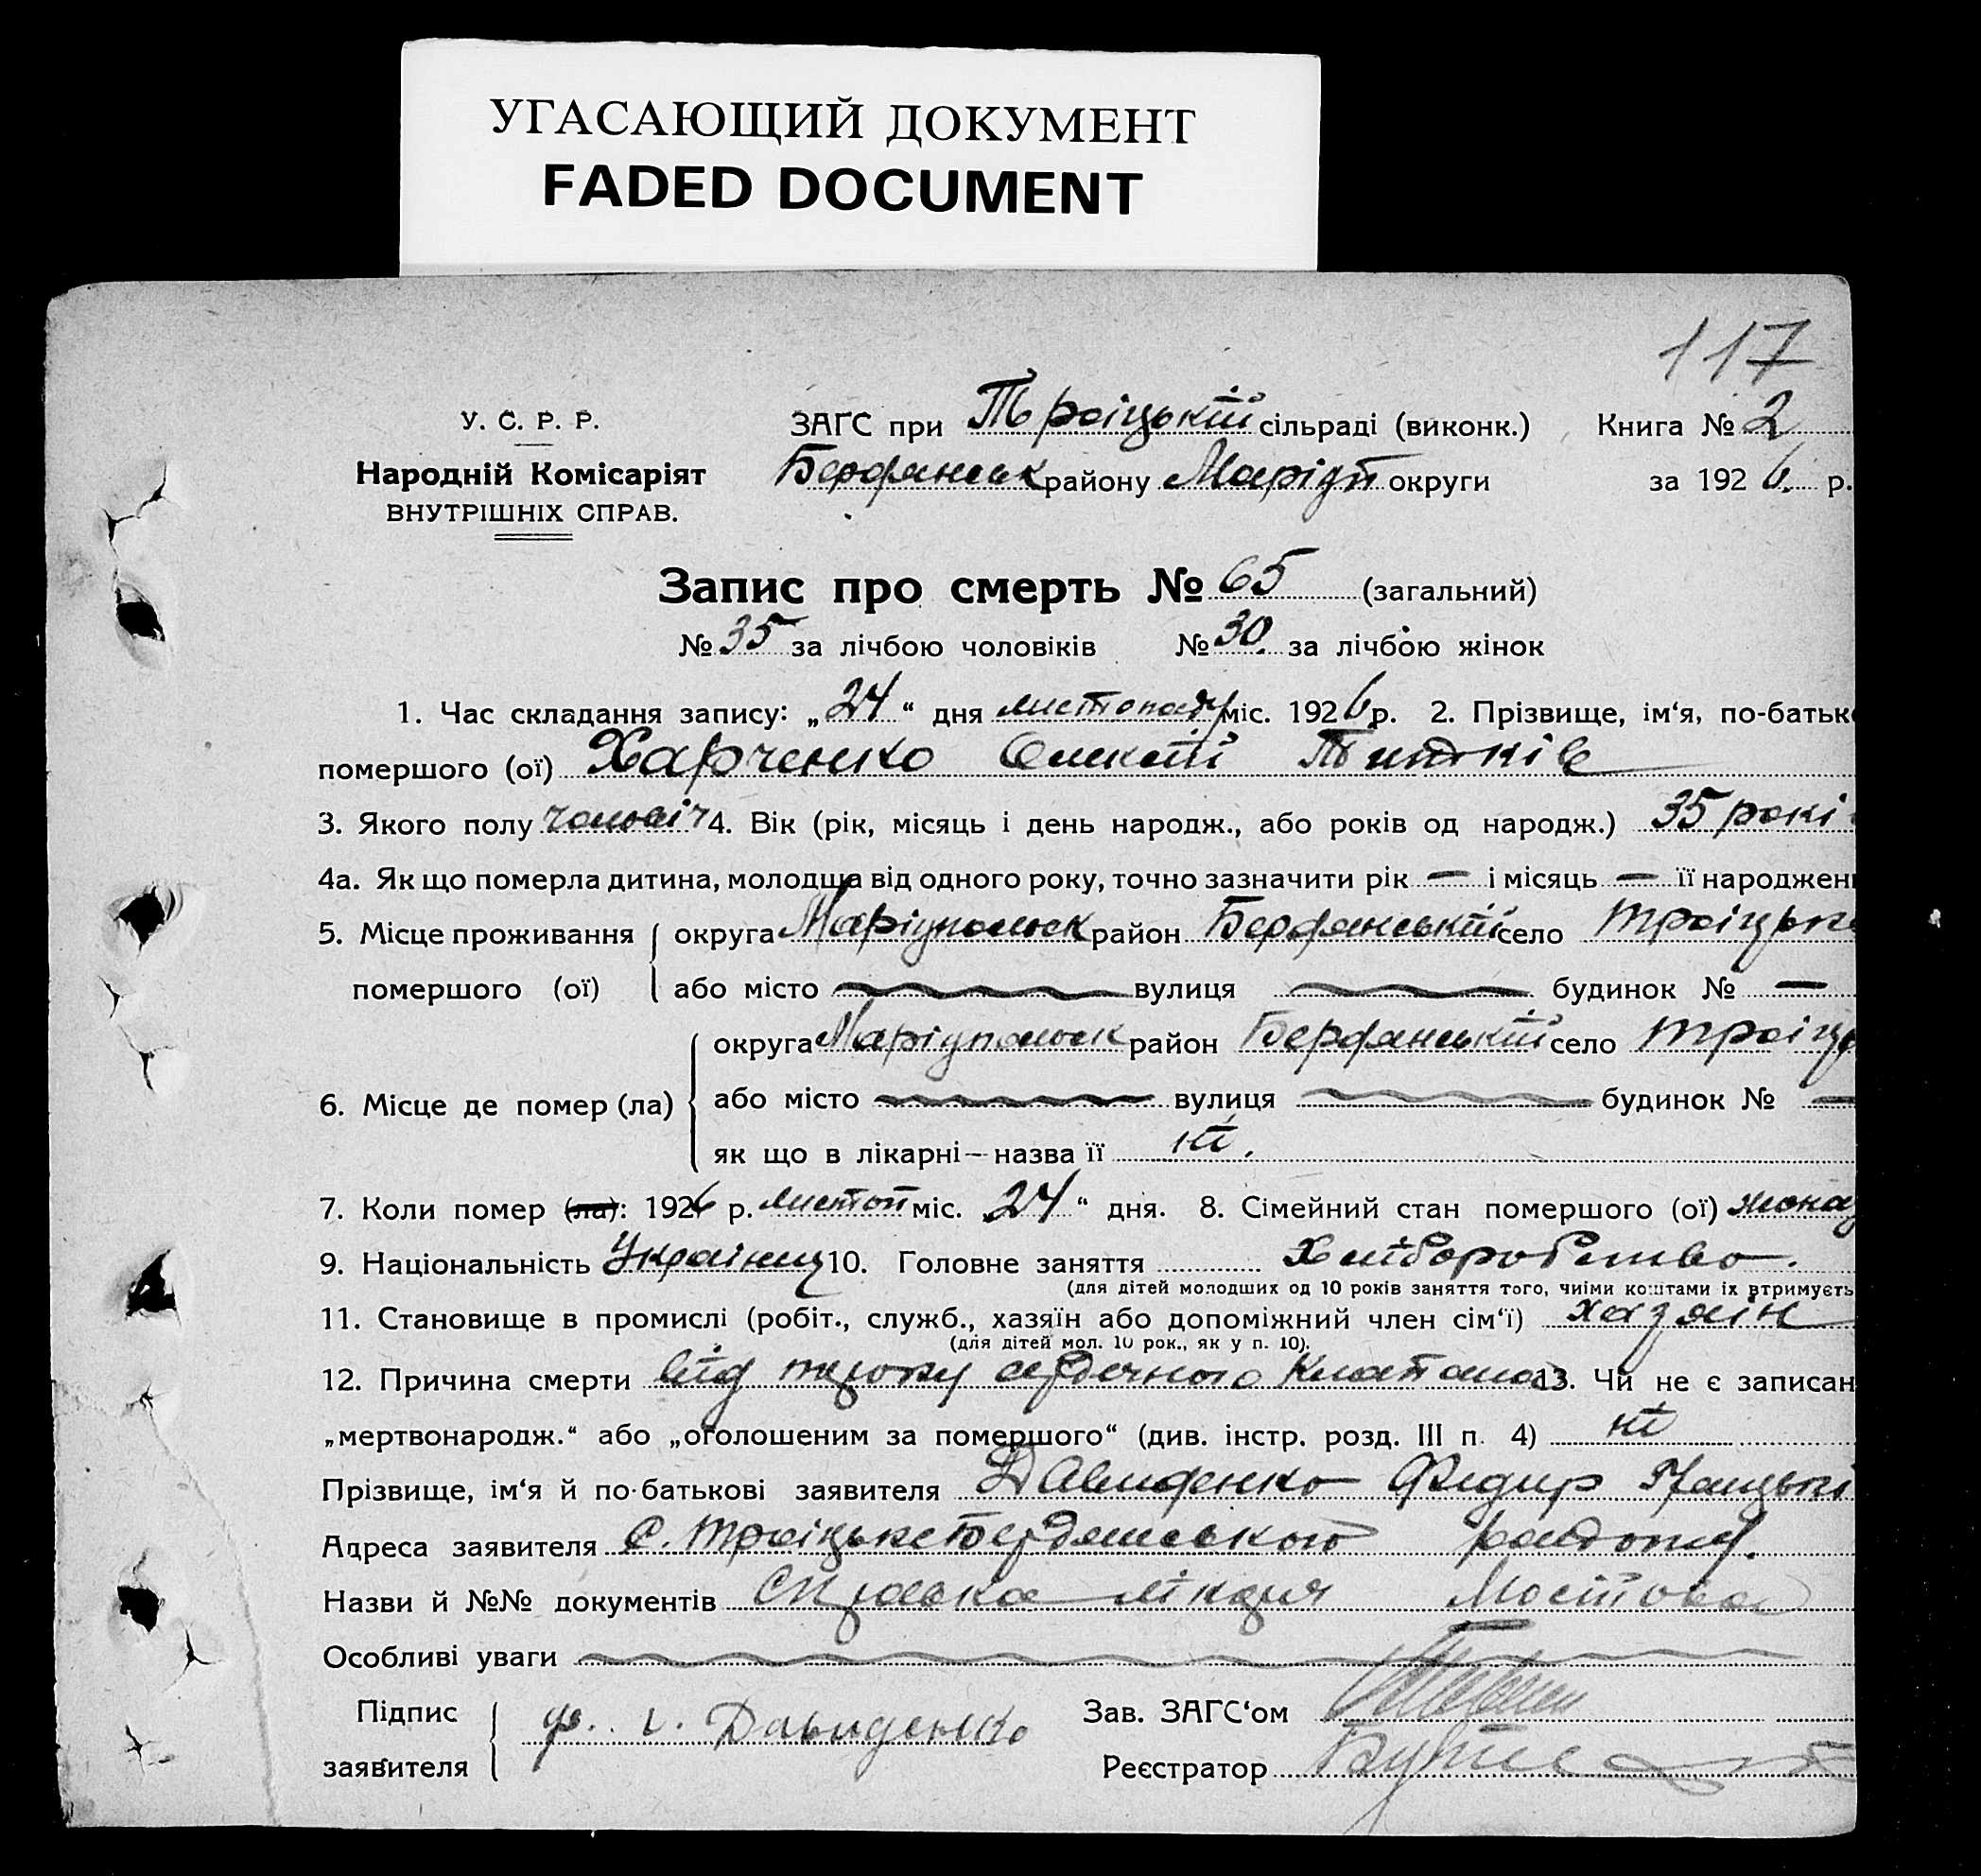 УГАСАЮЩИЙ ДОКУМЕНТ
FADED DOCUMENT
117
У. С. Р. Р.
ЗАГС при Троіцькій сільраді (виконк.) Книга № 2
Народній Комісаріят
Бердянськ району Маріуп округи за 1926 р.
ВНУТРІШНІХ СПРАВ.
Запис про смерть № 65 (загальний)
№ 35 за лічбою чоловіків № 30. за лічбою жінок
1. Час складання запису: „24“ дня листопаду міс. 1926 р. 2. Прізвище, ім‘я, по-батьк
помершого (ої) Харченко Олексій
3. Якого полу чоловіч 4. Вік (рік, місяць і день народж., або років од народж.) 35 років
4а. Як що померла дитина, молодша від одного року, точно зазначити рік — і місяць — її народжен
5. Місце проживання округа Маріупольск район Бердянський село Троіцьке
помершого (ої) або місто вулиця будинок № —
округа Маріупольск район Бердянський село Троіць
6. Місце де помер (ла) або місто вулиця будинок № —
як що в лікарні—назва її ні.
7. Коли помер (ла): 1926 р. листоп міс. 24“ дня. 8. Сімейний стан помершого (ої)
9. Національність Українец 10. Головне заняття Хліборобство.
(для дітей молодших од 10 років заняття того, чиїми коштами їх втримуєть
11. Становище в промислі (робіт., служб., хазяїн або допоміжний член сім‘ї) хазяін
(для дітей мол. 10 рок., як у п. 10).
12. Причина смерти від сердечного 13. Чи не є записан
„мертвонародж.“ або „оголошеним за помершого“ (див. інстр. розд. III п. 4) ні
Прізвище, ім‘я й по-батькові заявителя Давиденко Федир
Адреса заявителя с. Троіцьке Бердянського району.
Назви й №№ документів Справка лікаря
Особливі уваги
Підпис
заявителя ф. г. Давиденко
Зав. ЗАГС‘ом
Реєстратор